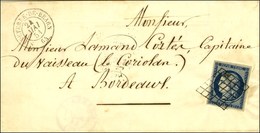 Monsieur,
Monsieur Lamand Cortés, Capitaine
du Vaisseau (le Coriolan)
A Bordeaux